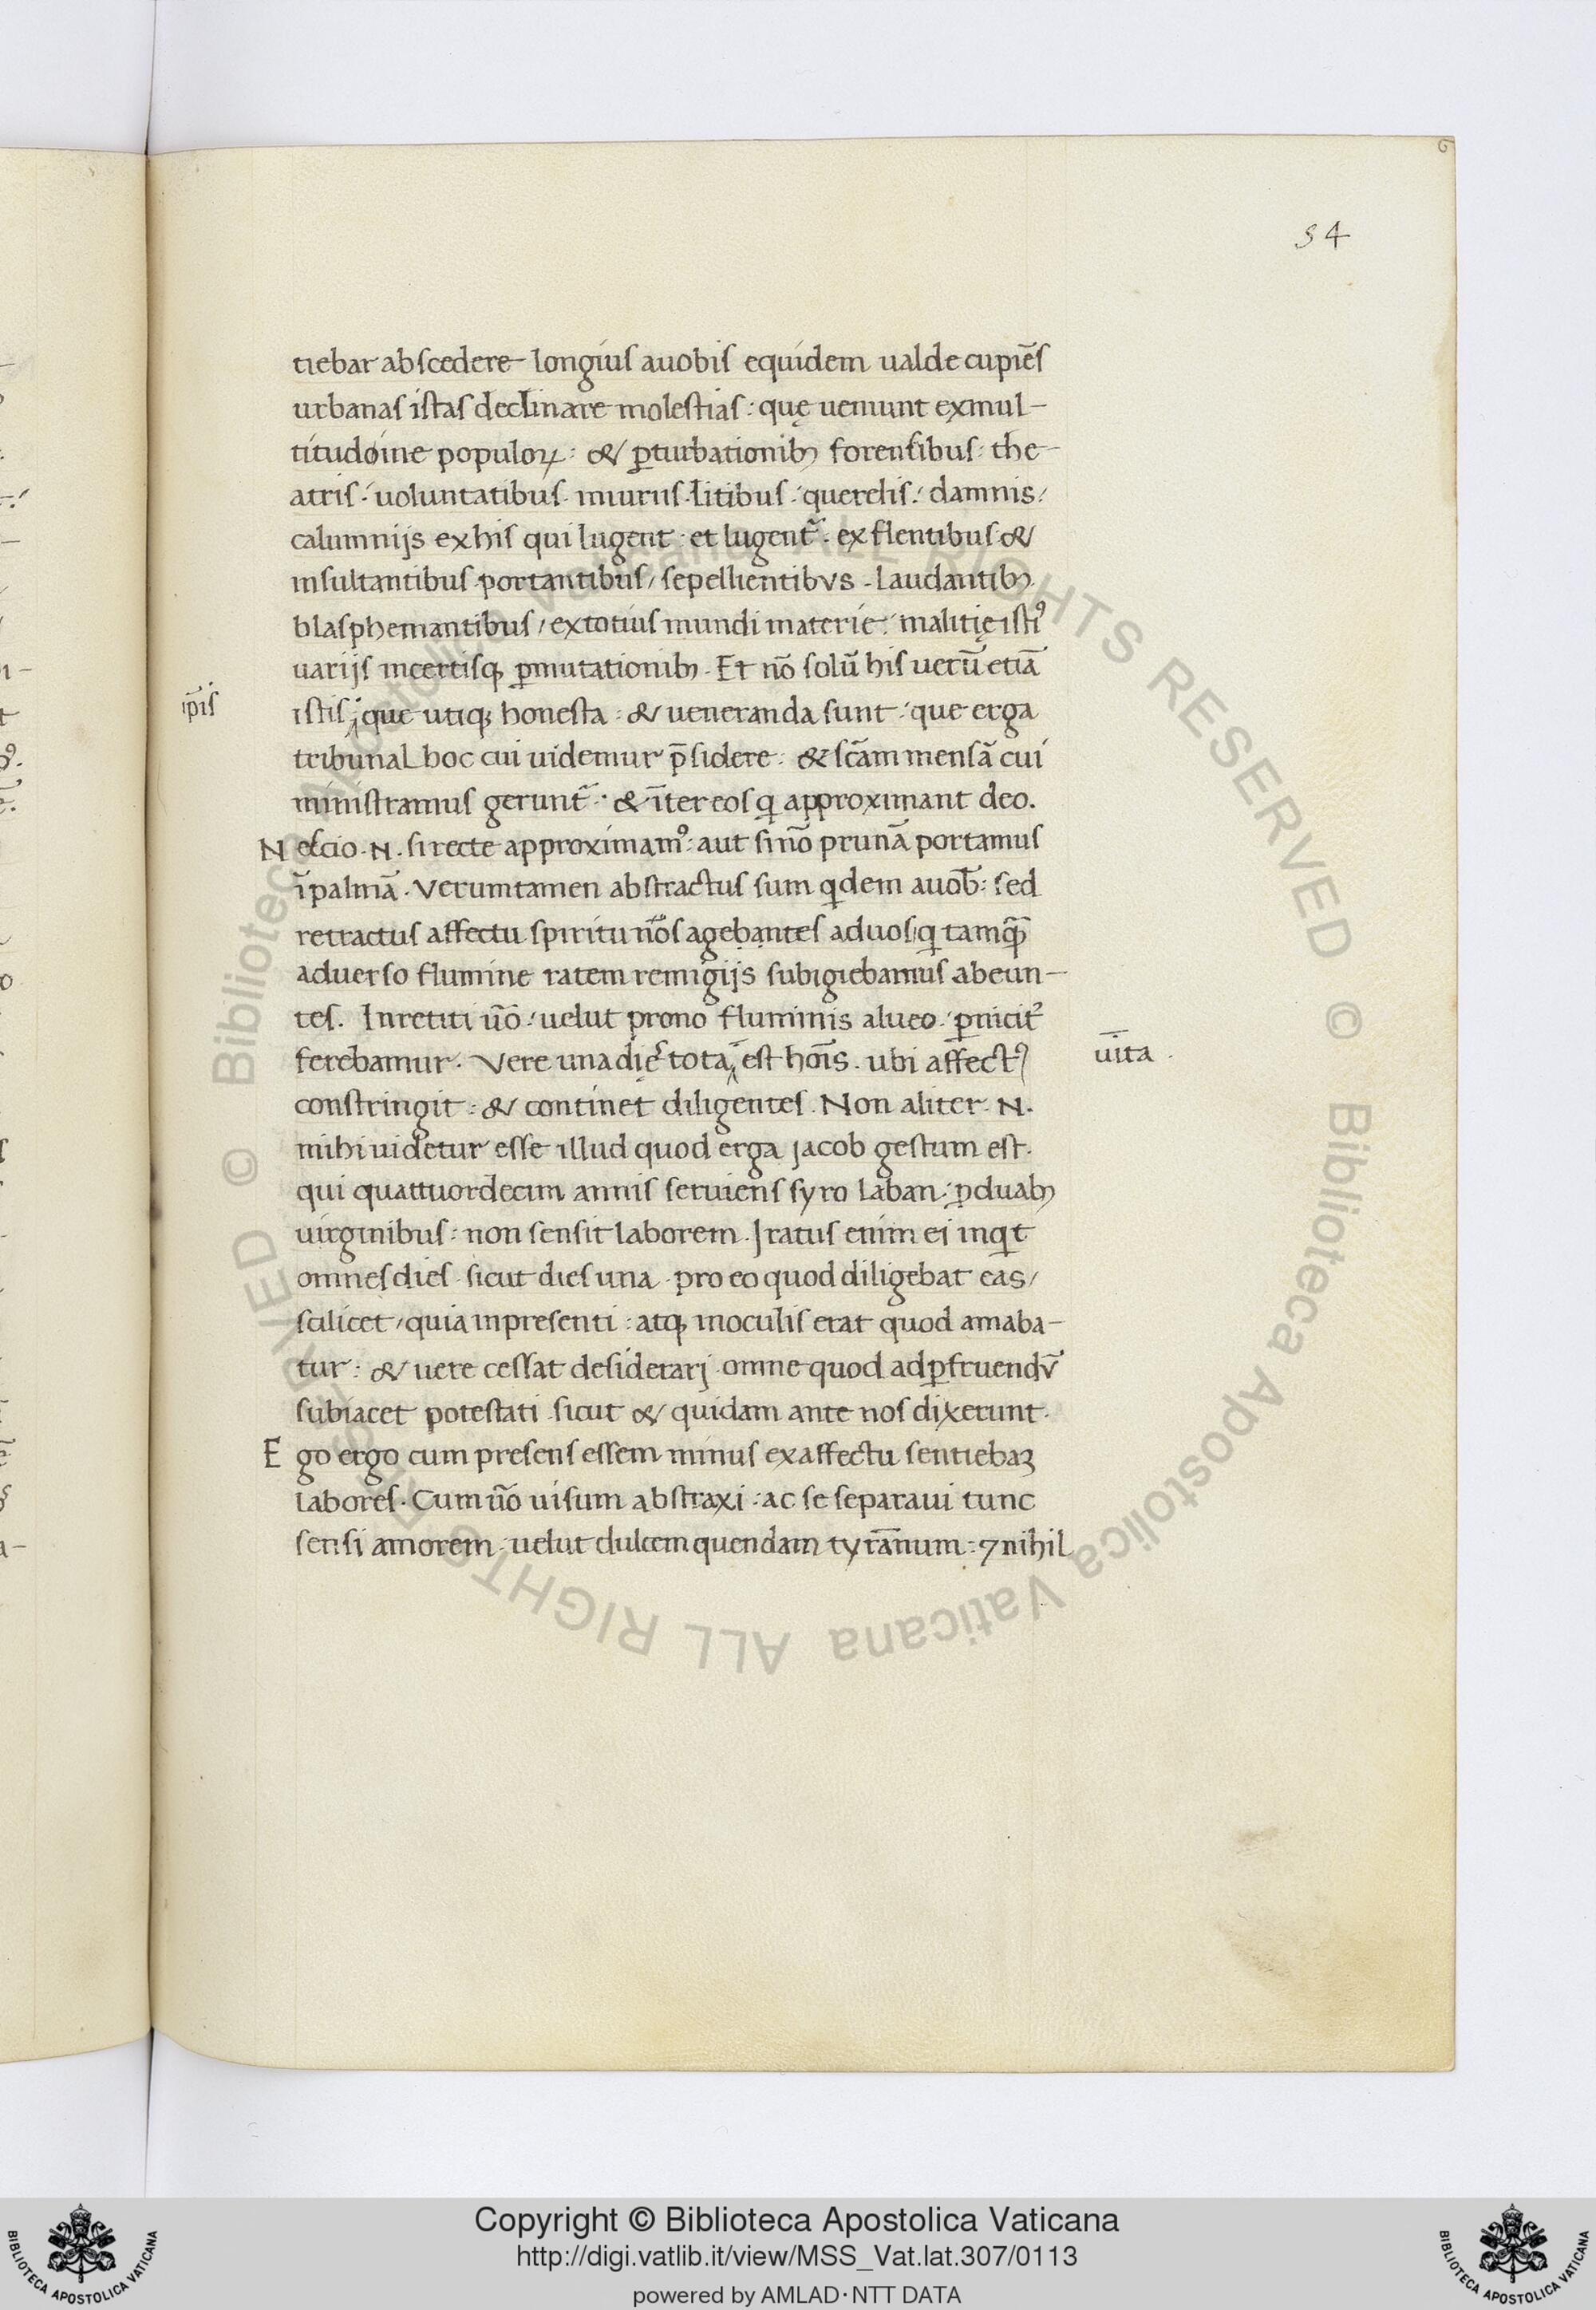 6
34
tiebar abscedere longius auobis equidem ualde cupiēs
urbanas istas declinare molestias: quę ueniunt exmul-
titudoine populoꝝ: & ꝑturbationibꝫ forensibus: the-
atris: uoluntatibus iniuriis litibus: querelis: damnis/
calumnijs exhis qui lugent et lugent᷑. ex flentibus &
insultantibus portantibus/ sepellientibus laudantibꝫ
blasphemantibus/ extotius mundi materie: malitię istiꝰ
uarijs incertisqꝫ ꝑmutationibꝫ. Et nō solū his uerū etiā
ip̄is
istis que utiqꝫ honesta: & ueneranda sunt: que erga
tribunal hoc cui uidemur p̄sidere: & scām mensā cui
ministramus gerunt᷑: & īter eos qi approximant deo.
Nescio .N. si recte approximamꝰ: aut sinō prunā portamus
īpalmā. Verumtamen abstractus sum qidem auob̄: sed
retractus affectu spiritu nōs agebantes aduos qi tamqꝫ̄
aduerso flumine ratem remigijs subigiebamus abeun-
tes. Inretiti ūo: uelut prono fluminis alueo: ꝑnicit᷑
ferebamur. Vere una dię tota est hoīs. ubi affectꝰ
uīta.
constringit: & continet diligentes. Non aliter .N.
mihi uidetur esse illud quod erga jacob gestum est.
qui quattuordecim annis seruiens syro laban: ꝓduabꝫ
uirginibus: non sensit laborem. Iratus enim ei inqit
omnes dies sicut dies una pro eo quod diligebat eas/
scilicet/ quia inpresenti: atqꝫ inoculis erat quod amaba-
tur: & uere cessat desiderarj omne quod adꝑfruendū
subiacet potestati sicut & quidam ante nos dixerunt.
Ego ergo cum presens essem minus exaffectu sentiebaꝫ
labores. Cum ūo uisum abstraxi: ac se separaui tunc
sensi amorem uelut dulcem quendam tyrānnum: ⁊ nihil
© Biblioteca Apostolica Vaticana ALL RIGHTS RESERVED © Biblioteca Apostolica Vaticana ALL RIGHTS RESERVED
Copyright © Biblioteca Apostolica Vaticana
http://digi.vatlib.it/view/MSS_Vat.lat.307/0113
powered by AMLAD·NTT DATA
BIBLIOTECA APOSTOLICA VATICANA
BIBLIOTECA APOSTOLICA VATICANA